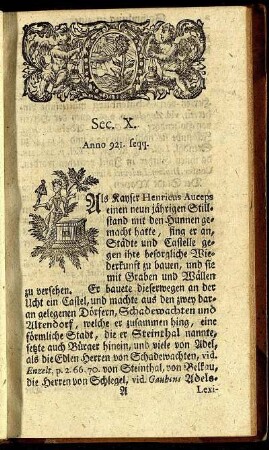 Sec. X.
Anno 921. seqq.
Als Kayser Henricus Auceps
einen neun jährigen Still-
stand mit den Hunnen ge-
macht hatte, fing er an,
Städte und Castelle ge-
gen ihre besorgliche Wie-
derkunft zu bauen, und sie
mit Graben und Wällen
zu versehen. Er bauete dieserwegen an der
Ucht ein Castel, und machte aus den zwey dar-
an gelegenen Dörfern, Schadewachten und
Altendorf, welche er zusammen hing, eine
förmliche Stadt, die er Steinthal nannte,
setzte auch Bürger hinein, und viele von Adel,
als die Edlen Herren von Schadewachten, vid.
Enzelt, p. 2. 66. 70. von Steinthal, von Belkau,
die Herren von Schlegel, vid. Gauhins Adels-
A Lexi-